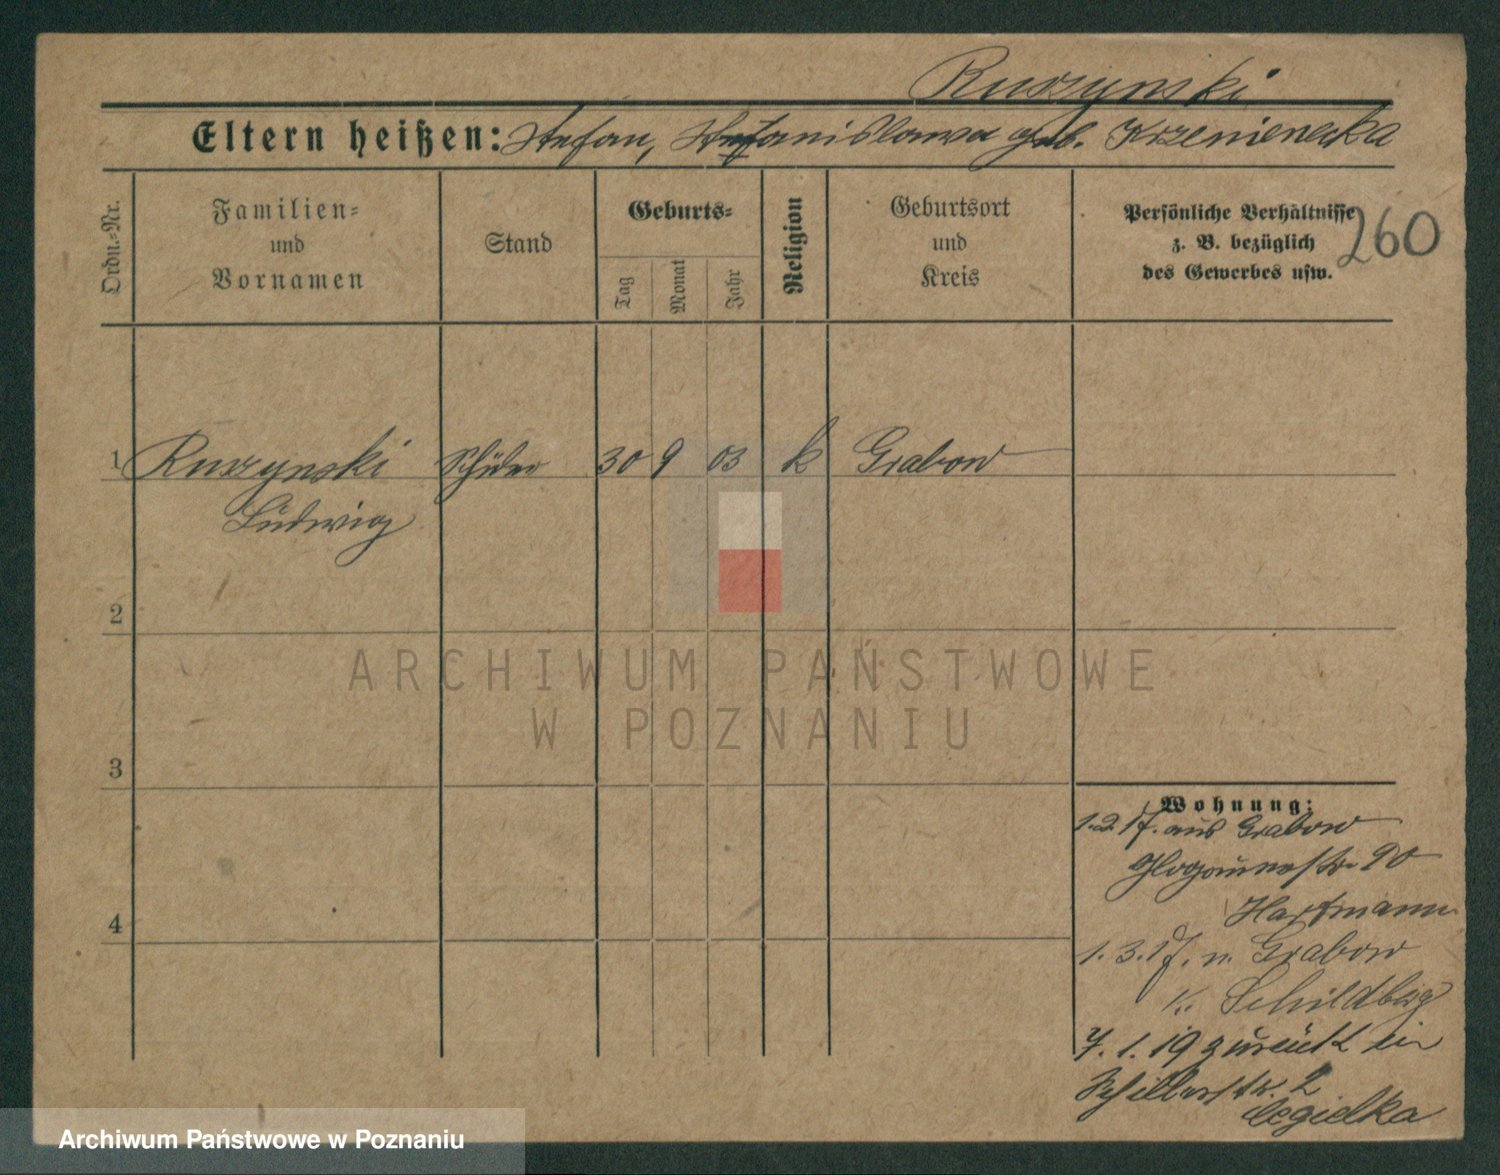 Ruszynski
Eltern heißen: Stefan, Stefanislawa geb. Krzenienecka
Ordn.-Nr.
Familien-
und
Vornamen
Stand
Geburts-
Tag
Monat
Jahr
Religion
Geburtsort
und
Kreis
Persönliche Verhältnisse
z. B. bezüglich
des Gewerbes usw.
260
1 Ruszynski Schüler 30 9 03 k Grabow
Ludwig
2
3
4
Wohnung:
1.2.17. aus Grabow
Glogauerstr. 90
Hartmann
1.3.17. n. Grabow
K. Schildberg
7.1.19 zurück in
Schillerstr. 2
Cegielka
ARCHIWUM PAŃSTWOWE
W POZNANIU
Archiwum Państwowe w Poznaniu